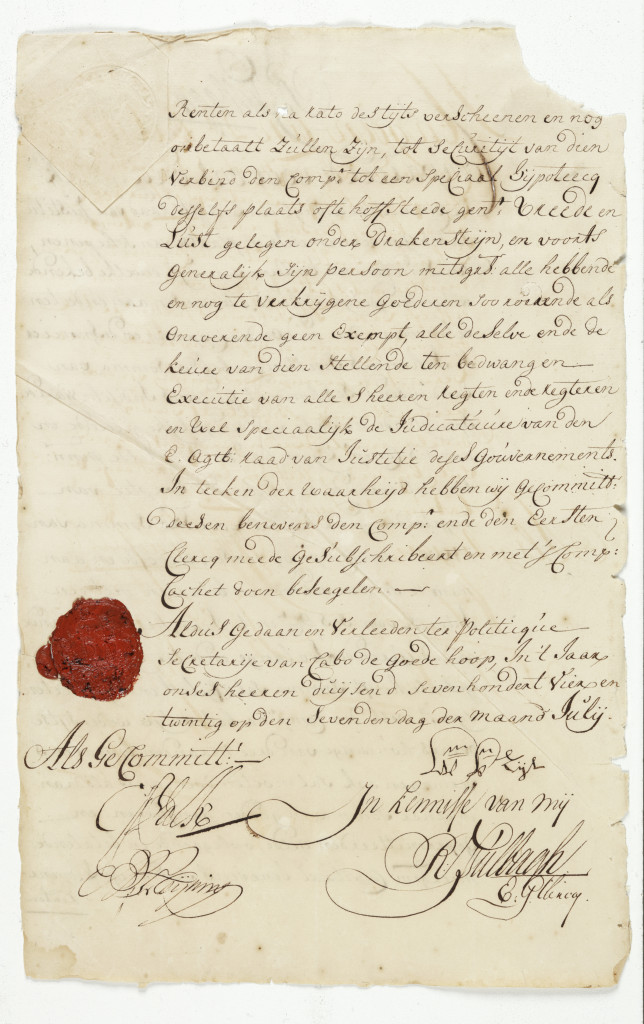 Renten als na rato des tijts verscheenen en nog
onbetaalt zullen zijn, tot securitijt van dien
verbind den Comp:t tot een speciaal Hijpoteecq
desselfs plaats ofte hoffsteede gen:t Vreede en
Lust gelegen onder Drakensteijn, en voorts
generalijk sijn persoon mitsg:rs alle hebbende
en nog te verkrijgene goederen soo roerende als
onroerende geen exempt, alle deselve ende de
keure van dien stellende ten bedwang en
Executie van alle s'heeren regten ende regteren
en wel speciaalijk de Judicatuure van den
E: Agtb: raad van Justitie deses Gouvernements.
In teeken der waarheijd hebben wij Gecommitt:
deesen benevens den Comp:t ende den Eersten
Clercq meede gesubschribeert en met 's Comp:
Cachet doen beseegelen.
Aldus Gedaan en verleeden ter Politicque
Secretarije van Cabo de Goede hoop, In 't Jaar
onses heeren duijsend sevenhondert vier en
twintig op den sevenden dag der maand Julij.
Als Gecommitt:
Zijl
In kennisse van mij
R Tulbagh
E: G Clercq.